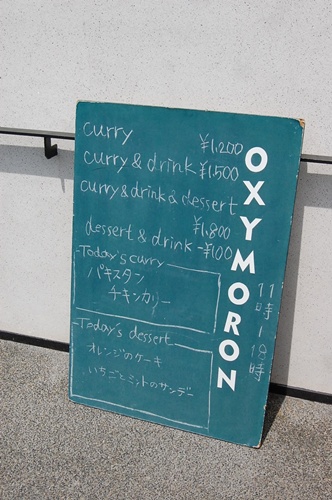 curry
¥1,200
curry & drink ¥1,500
curry & drink & dessert
¥1,800
dessert & drink -¥100
Today's curry
パキスタン
チキンカリー
Today's dessert
オレンジのケーキ
いちごとミントのサンデー
OXYMORON
11時~18時